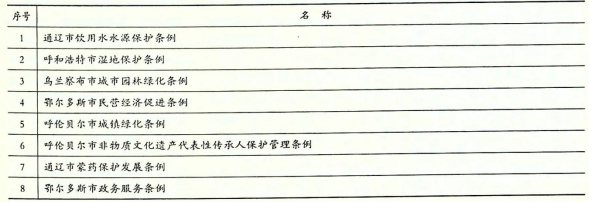 序号 名称
1 通辽市饮用水水源保护条例
2 呼和浩特市湿地保护条例
3 乌兰察布市城市园林绿化条例
4 鄂尔多斯市民营经济促进条例
5 呼伦贝尔市城镇绿化条例
6 呼伦贝尔市非物质文化遗产代表性传承人保护管理条例
7 通辽市蒙药保护发展条例
8 鄂尔多斯市政务服务条例